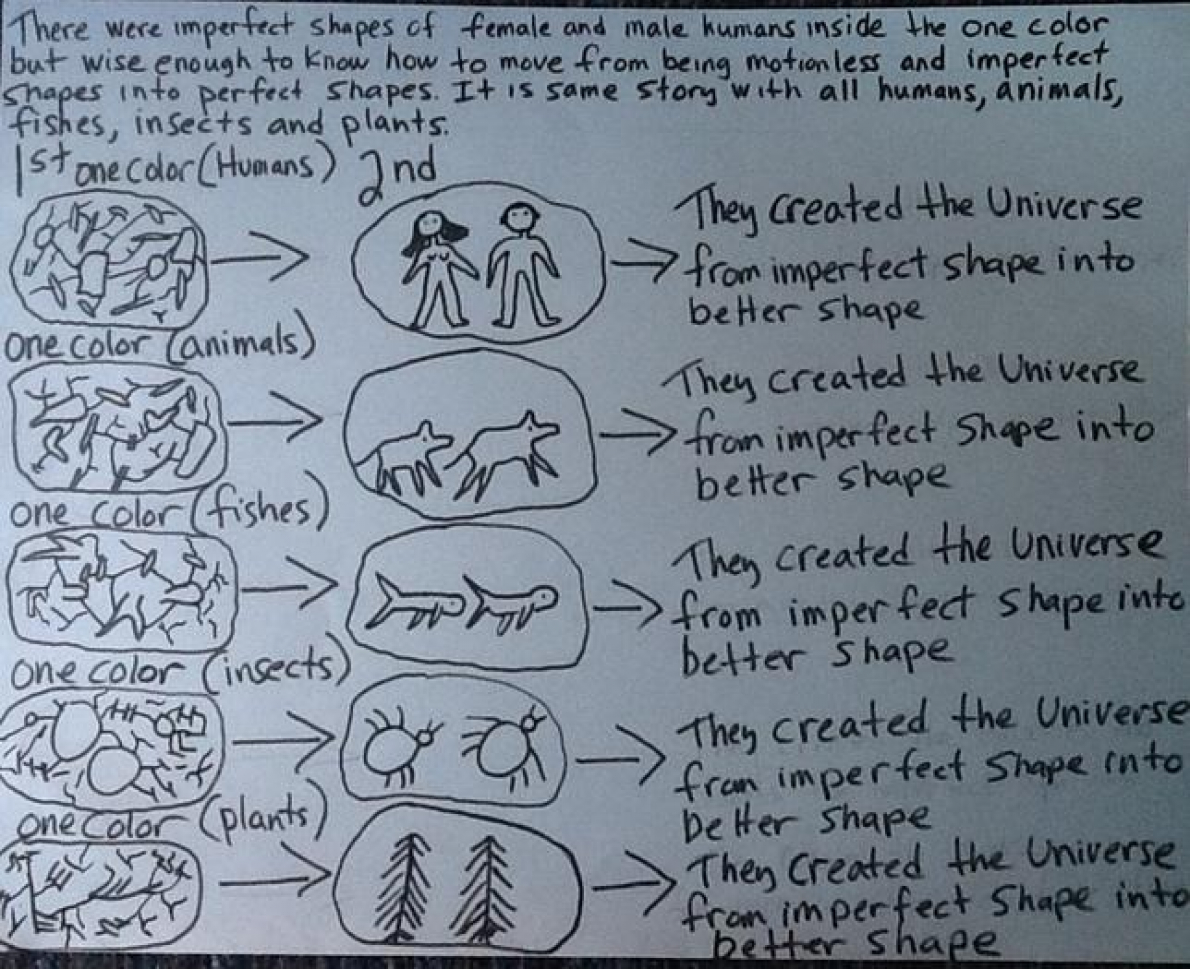 There were imperfect shapes of female and male humans inside the one color
but wise enough to know how to move from being motionless and imperfect
shapes into perfect shapes. It is same story with all humans, animals,
fishes, insects and plants.
1st one color (Humans) 2nd
They created the Universe
from imperfect shape into
better shape
one color (animals)
They created the Universe
from imperfect shape into
better shape
one color (fishes)
They created the Universe
from imperfect shape into
better shape
one color (insects)
They created the Universe
from imperfect shape into
better shape
one color (plants)
They created the Universe
from imperfect shape into
better shape